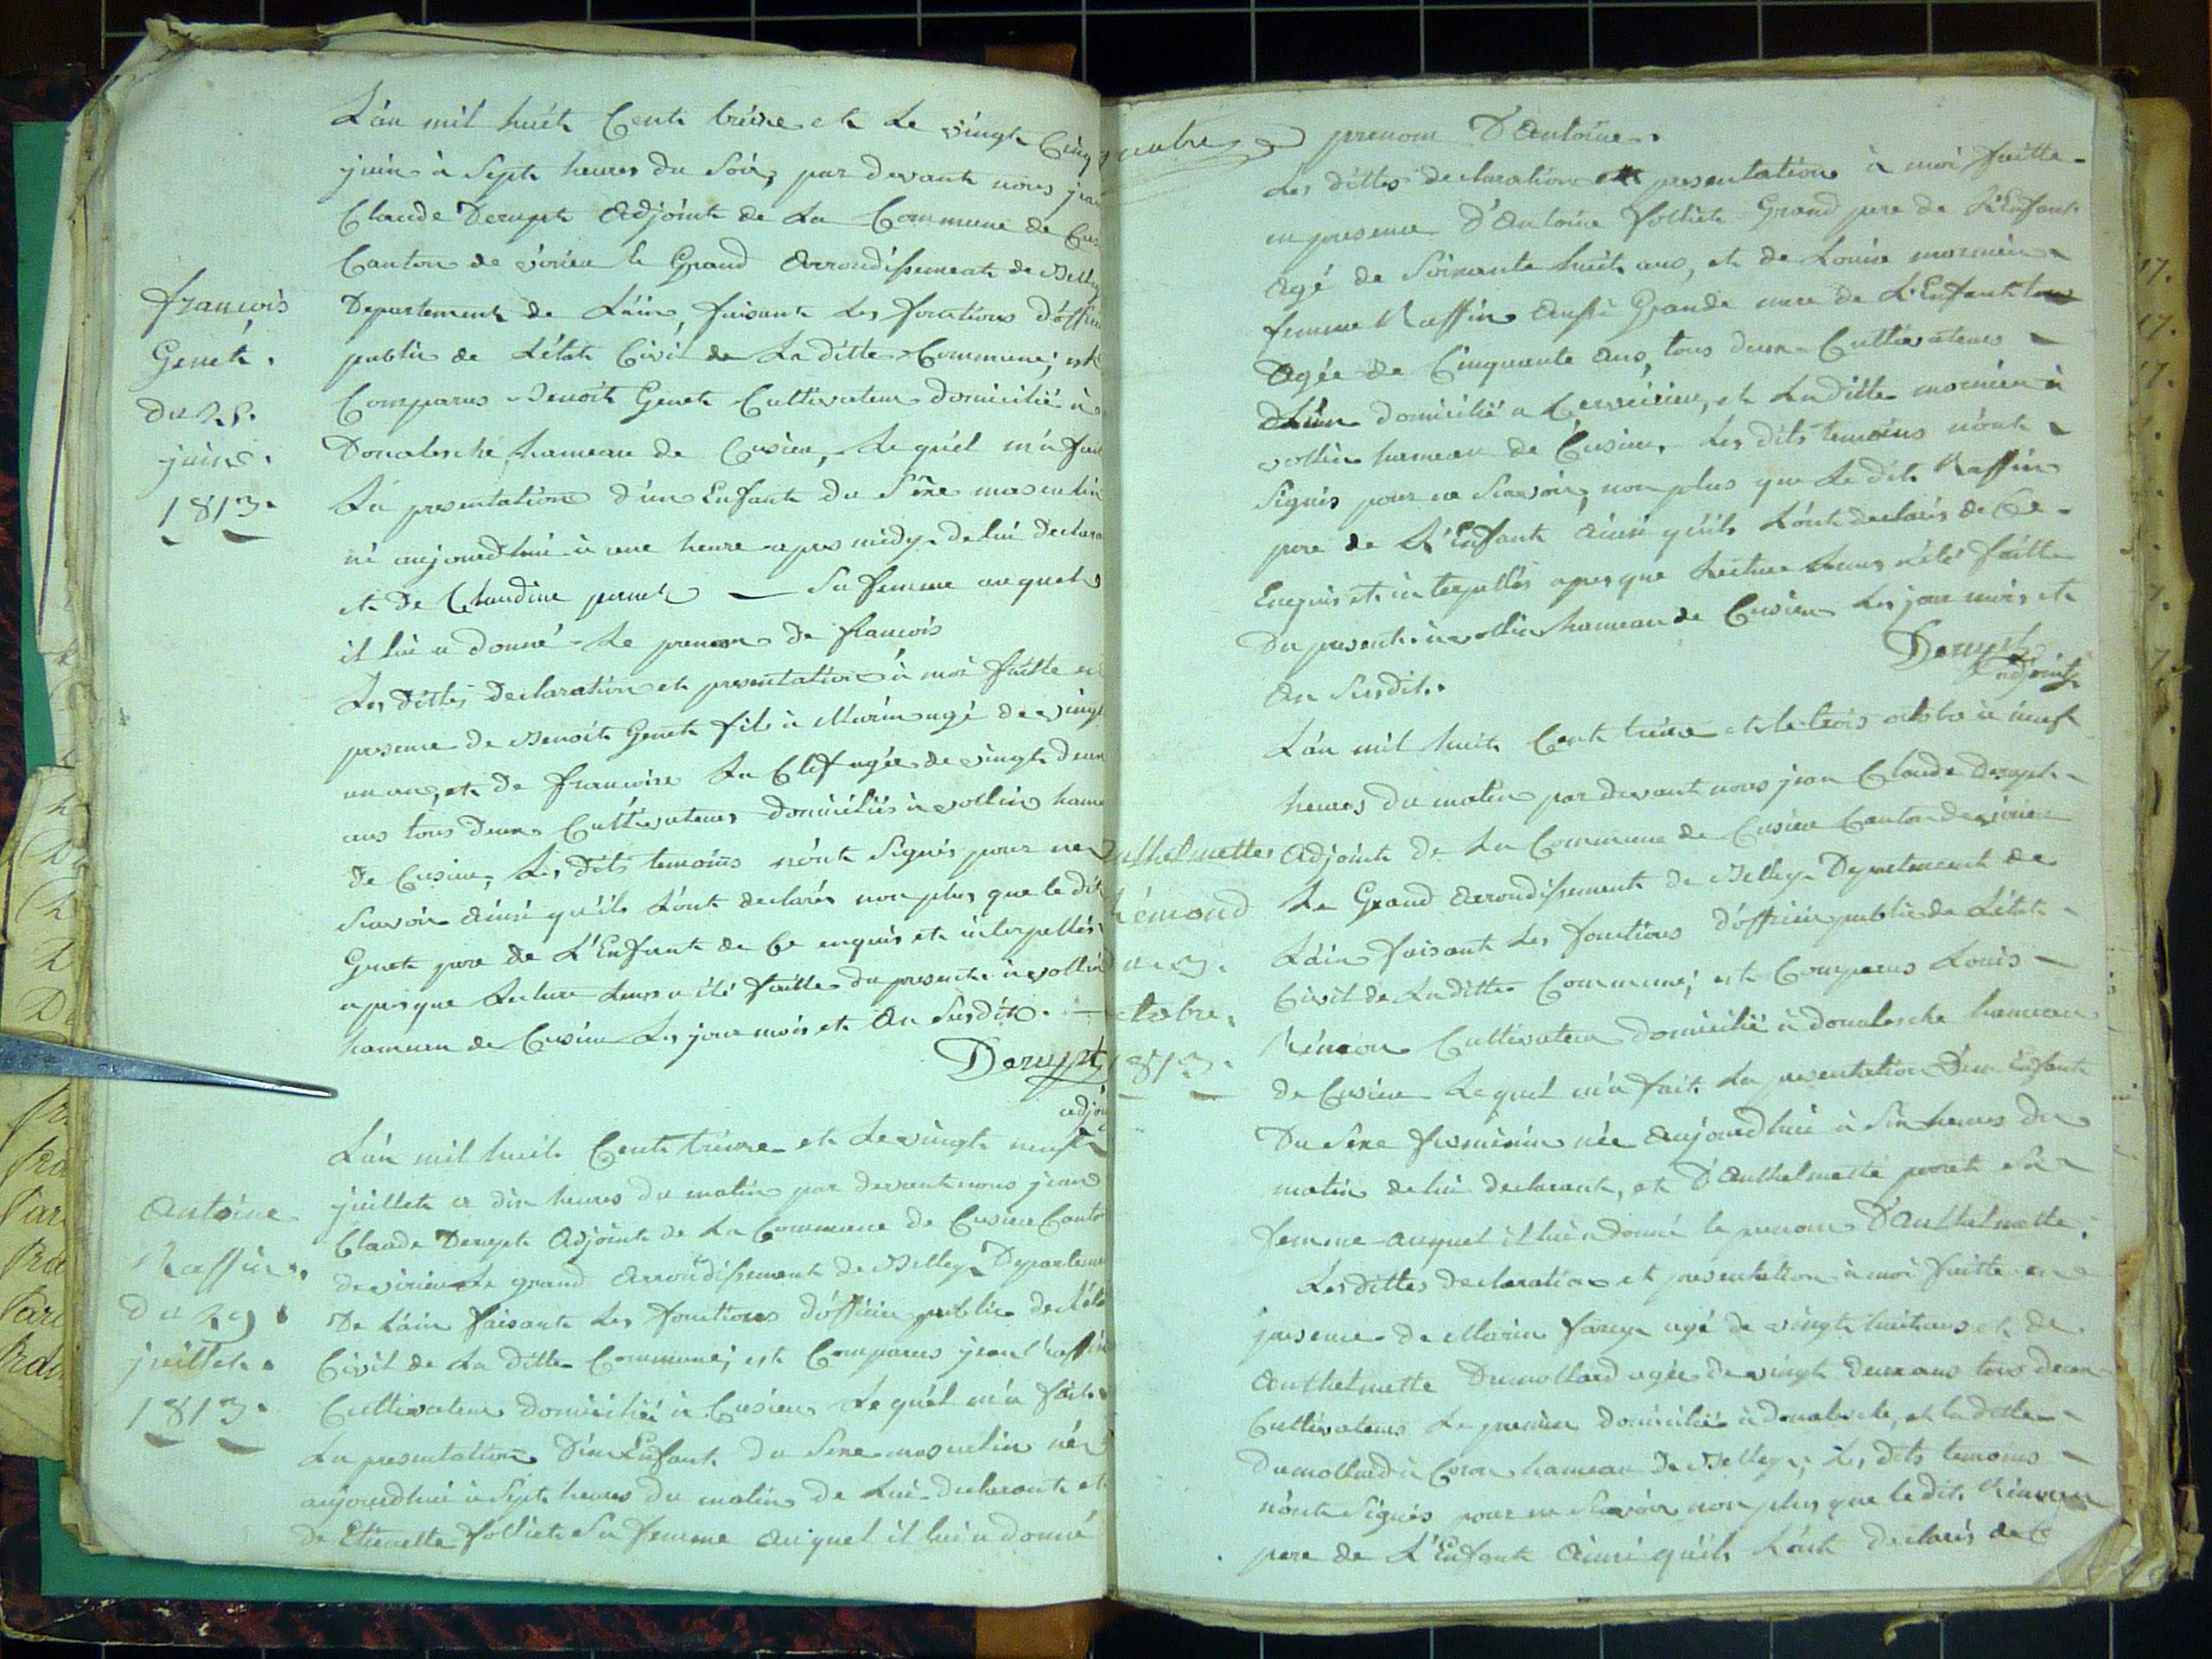 L'an mil huit Cent treize et Le vingt Cinq
juin à Sept heures du Soir, par devant nous jean
Claude Derupt Adjoint de La Commune de Cus
Canton de virieu le Grand Arrondissement de Belley
françois
Genet.
du 25.
juin.
1813.
Departement de L'ain, faisant Les fonctions d'offici
public de L'état Civil de La ditte Commune; est
Comparus Benoit Genet Cultivateur domicilié à
Donalesche, hameau de Cusieu, Lequel m'a fait
La presentation d'un Enfant du Sexe masculin
né aujourdhui à une heure apres midy de lui Declara
et de Claudine pernet — Sa femme auquel
il lui a donné Le prenom de françois
Les dittes Declaration et presentation à moi faitte en
presence de Benoit Genet fils à Marin agé de vingt
un an, et de francoise La Clef agée de vingt deux
ans tous deux Cultivateurs domiciliés à vollin hame
de Cusieu; Les dits temoins n'ont Signés pour ne
Scavoir Ainsi qu'ils L'ont declarés non plus que le dit
Genet pere de L'Enfant de Ce enquis et interpellés
apres que Lecture Leurs a été faitte du present à vollin
hameau de Cusieu Les jour mois et An Susdit. —
Derupt
adjoi
L'an mil huit Cent treize et Le vingt neuf
Antoine
Raffin.
du 29.
juillet.
1813.
juillet a dix heures du matin par devant nous jean
Claude Derupt Adjoint de La Commune de Cusieu Canto
de virieu Le grand Arrondissement de Belley Departeme
De L'ain faisant Les fonctions d'officier public de L'éta
Civil de La ditte Commune; est Comparus jean Raffin
Cultivateur domicilié à Cusieu Lequel m'a fait
La presentation D'un Enfant du Sexe masculin né
aujourdhui à Sept heures du matin de Lui declarant et
de Etiennette folliet Sa femme Auquel il lui a donné
prenom D'Antoine.
Les dittes declaration et presentation à moi faitte
en presence D'Antoine folliet Grand pere de L'Enfant
agé de Soixante huit ans, et de Louise mornieu
femme Raffin Aussi Grande mere de L'Enfant
Agée de Cinquante Ans, tous deux Cultivateurs
L'un domicilié a , et La ditte mornieu à
vollin hameau de Cusieu. Les dits temoins n'ont
Signés pour ne Scavoir, non plus que Le dit Raffin
pere de L'Enfant Ainsi qu'ils L'ont declarés de Ce
Enquis et interpellés apres que Lecture Leurs a été faitte
Du present à vollin hameau de Cusieu Les jour mois et
An Susdit.
Derupt
adjoint
L'an mil huit Cent treize et le trois octobre à neuf
heures du matin par devant nous jean Claude Derupt
nthelmette
Rémond
du 3.
ctobre.
1813.
Adjoint de La Commune de Cusieu Canton de virieu
Le Grand Arrondissement de Belley Departement de
L'ain faisant Les fonctions d'officier public de L'état
Civil de La ditte Commune; est Comparus Louis
Rémon Cultivateur domicilié à donalesche hameau
de Cusieu Lequel m'a fait La presentation D'un Enfant
Du Sexe femminin née Aujourdhui à Six heures du
matin de lui declarant, et D'Anthelmette pernet Sa
femme auquel il lui a donné le prenom D'Anthelmette.
Les dittes declaration et presentation à moi faitte en
presence de Marin farey agé de vingt huit ans et de
Anthelmette Dumollard agée de vingt deux ans tous deux
Cultivateurs Le premier domicilié à donalesche, et la ditte
dumollard à Coron hameau de Belley; Les dits temoins
n'ont Signés pour ne Scavoir non plus que le dit Rémon
pere de L'Enfant Ainsi qu'ils L'ont declarés de Ce